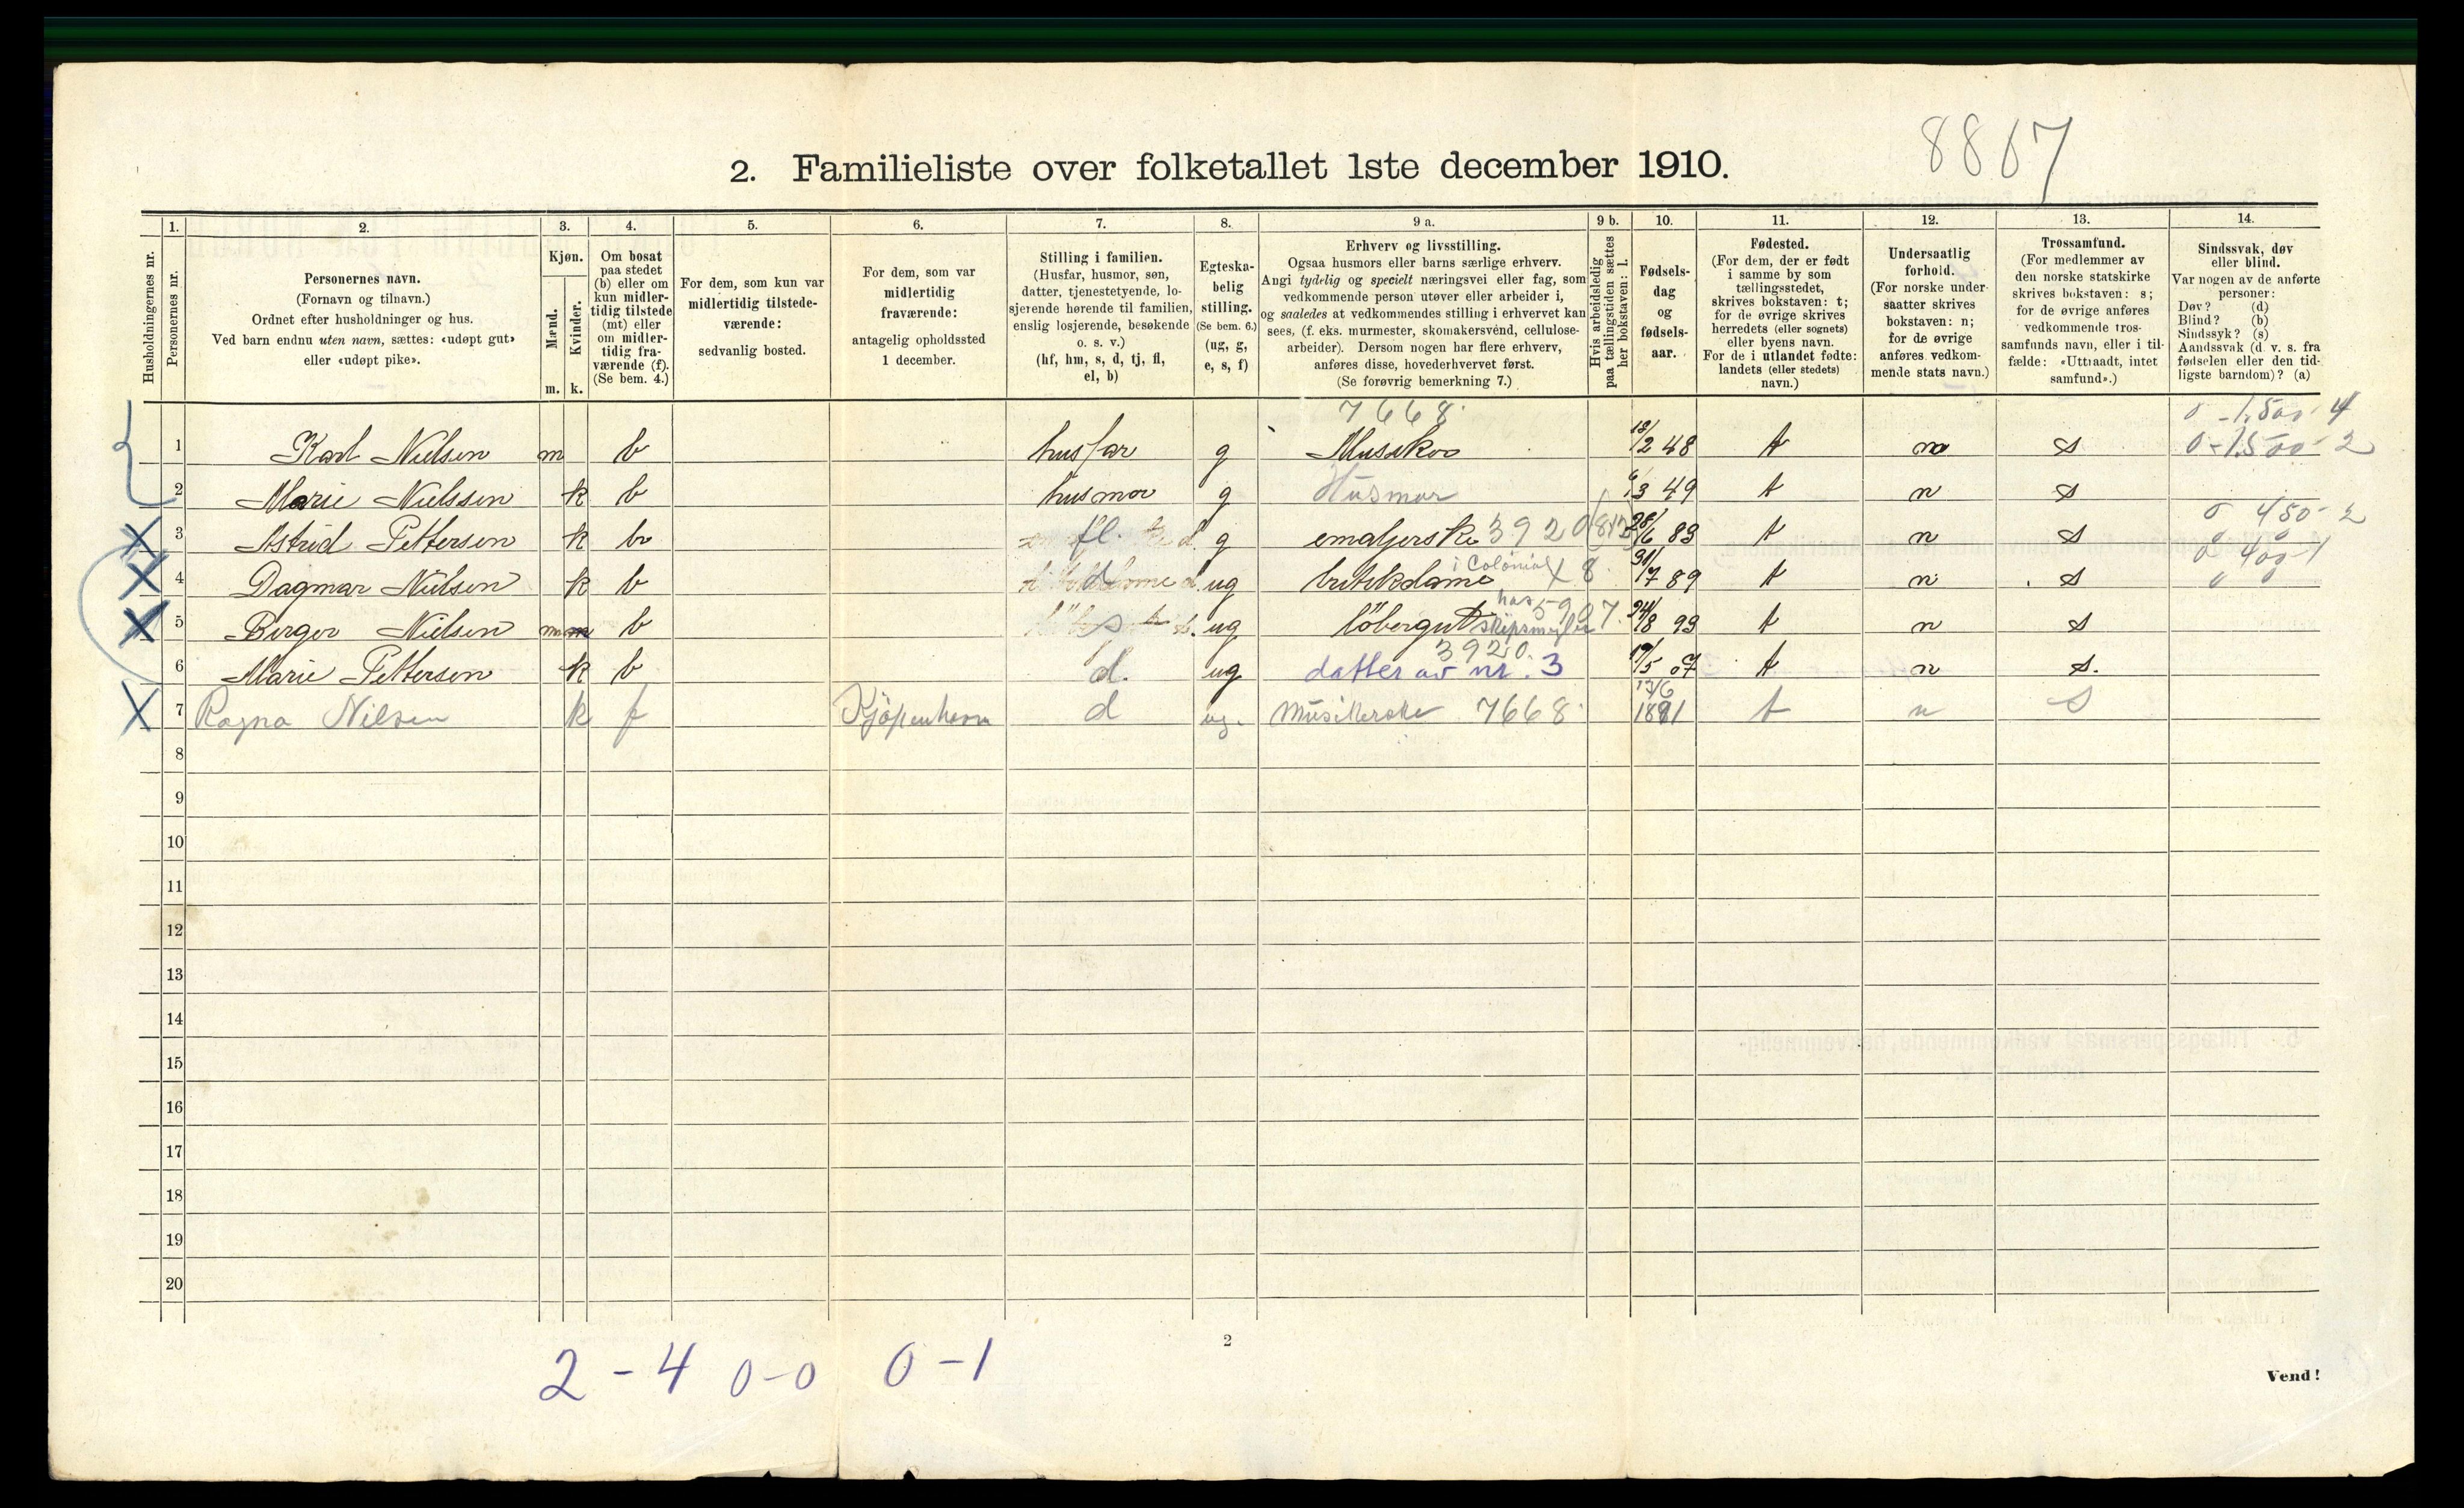 8867
2. Familieliste over folketallet 1ste december 1910.
Husholdningernes nr.
1. Personernes nr.
2. Personernes navn.
(Fornavn og tilnavn.)
Ordnet efter husholdninger og hus.
Ved barn endnu uten navn, sættes: «udøpt gut»
eller «udøpt pike».
3. Kjøn.
Mænd. m.
Kvinder. k.
4. Om bosat
paa stedet
(b) eller om
kun midler-
tidig tilstede
(mt) eller
om midler-
tidig fra-
værende (f).
(Se bem. 4.)
5. For dem, som kun var
midlertidig tilstede-
værende:
sedvanlig bosted.
6. For dem, som var
midlertidig
fraværende:
antagelig opholdssted
1 december.
7. Stilling i familien.
(Husfar, husmor, søn,
datter, tjenestetyende, lo-
sjerende hørende til familien,
enslig losjerende, besøkende
o. s. v.)
(hf, hm, s, d, tj, fl,
el, b)
8. Egteska-
belig
stilling.
(Se bem. 6.)
(ug, g,
e, s, f)
9 a. Erhverv og livsstilling.
Ogsaa husmors eller barns særlige erhverv.
Angi tydelig og specielt næringsvei eller fag, som
vedkommende person utøver eller arbeider i,
og saaledes at vedkommendes stilling i erhvervet kan
sees, (f. eks. murmester, skomakersvend, cellulose-
arbeider). Dersom nogen har flere erhverv,
anføres disse, hovederhvervet først.
(Se forøvrig bemerkning 7.)
9 b. Hvis arbeidsledig
paa tællingstiden sættes
her bokstaven: l.
10. Fødsels-
dag
og
fødsels-
aar.
11. Fødested.
(For dem, der er født
i samme by som
tællingsstedet,
skrives bokstaven: t;
for de øvrige skrives
herredets (eller sognets)
eller byens navn.
For de i utlandet fødte:
landets (eller stedets)
navn.)
12. Undersaatlig
forhold.
(For norske under-
saatter skrives
bokstaven: n;
for de øvrige
anføres vedkom-
mende stats navn.)
13. Trossamfund.
(For medlemmer av
den norske statskirke
skrives bokstaven: s;
for de øvrige anføres
vedkommende tros-
samfunds navn, eller i til-
fælde: «Uttraadt, intet
samfund».)
14. Sindssvak, døv
eller blind.
Var nogen av de anførte
personer:
Døv? (d)
Blind? (b)
Sindssyk? (s)
Aandssvak (d. v. s. fra
fødselen eller den tid-
ligste barndom)? (a)
7668. 0 - 1.500 - 4
1 Karl Nielsen m b husfar g Musikos 12/2 48 t n s 0 - 1.500 - 2
2 Marie Nielssen k b husmor g Husmor 6/3 49 t n s
0 450 - 2
X 3 Astrid Pettersen k b fl. g emaljerske 3920 28/6 83 t n s
i Colonial 0 400 - 1
X 4 Dagmar Nielsen k b d ug butikdame X 8. 31/7 89 t n s
hos 5907.
X 5 Birger Nielsen m b s ug löbergut skipsmegler 24/8 93 t n s
3920.
6 Marie Pettersen k b d. ug datter av nr. 3 19/5 07 t n s.
X 7 Ragna Nilsen k f Kjøpenhavn d ug. Musikerske 7668. 13/6 1881 t n s
8
9
10
11
12
13
14
15
16
17
18
19
20
2
2 - 4 0 - 0 0 - 1
Vend!